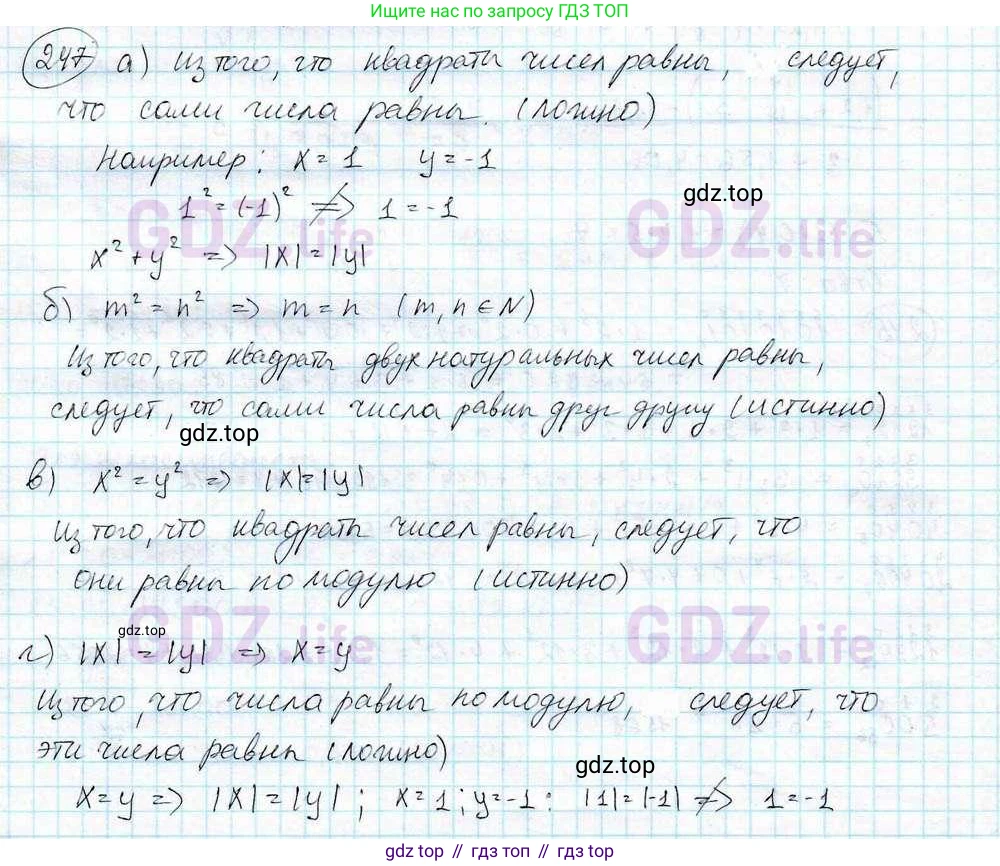 Ищите больше по запросу ГДЗ ТОП
247 а) Из того, что квадраты чисел равны, следует,
что сами числа равны. (ложно)
Например: x = 1 y = -1
gdz.top
1² = (-1)² ≠> 1 = -1
GDZ.life GDZ.life
x² + y² => |x| = |y|
б) m² = n² => m = n (m, n ∈ N)
Из того, что квадраты двух натуральных чисел равны,
следует, что сами числа равны друг другу (истинно)
gdz.top
в) x² = y² => |x| = |y|
Из того, что квадраты чисел равны, следует, что
они равны по модулю (истинно)
GDZ.life GDZ.life
gdz.top
г) |x| = |y| => x = y
Из того, что числа равны по модулю, следует, что
эти числа равны (ложно)
gdz.top
x = y => |x| = |y| ; x = 1 ; y = -1 : |1| = |-1| ≠> 1 = -1
gdz top // гдз топ // gdz top // гдз топ